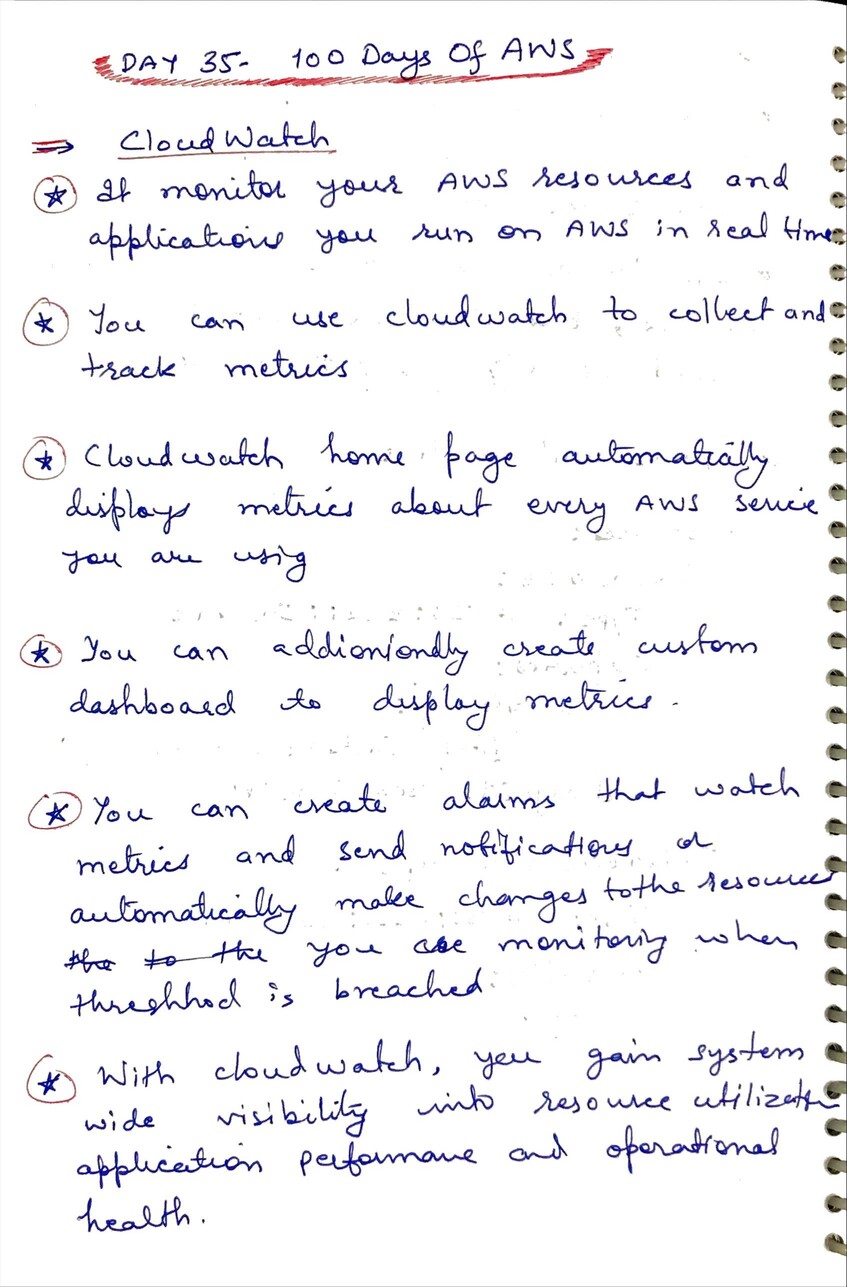 DAY 35- 100 Days Of AWS
⇒ CloudWatch
It monitor your AWS resources and
applications you run on AWS in real time
You can use cloudwatch to collect and
track metrics
Cloudwatch home page automatically
displays metrics about every AWS service
you are usig
You can addioniondly create custom
dashboard to display metrics.
You can create alarms that watch
metrics and send notifications or
automatically make changes to the resources
the to the you are monitoring when
threshhod is breached.
With cloudwatch, you gain system
wide visibility into resource utilization
application performance and operational
health.